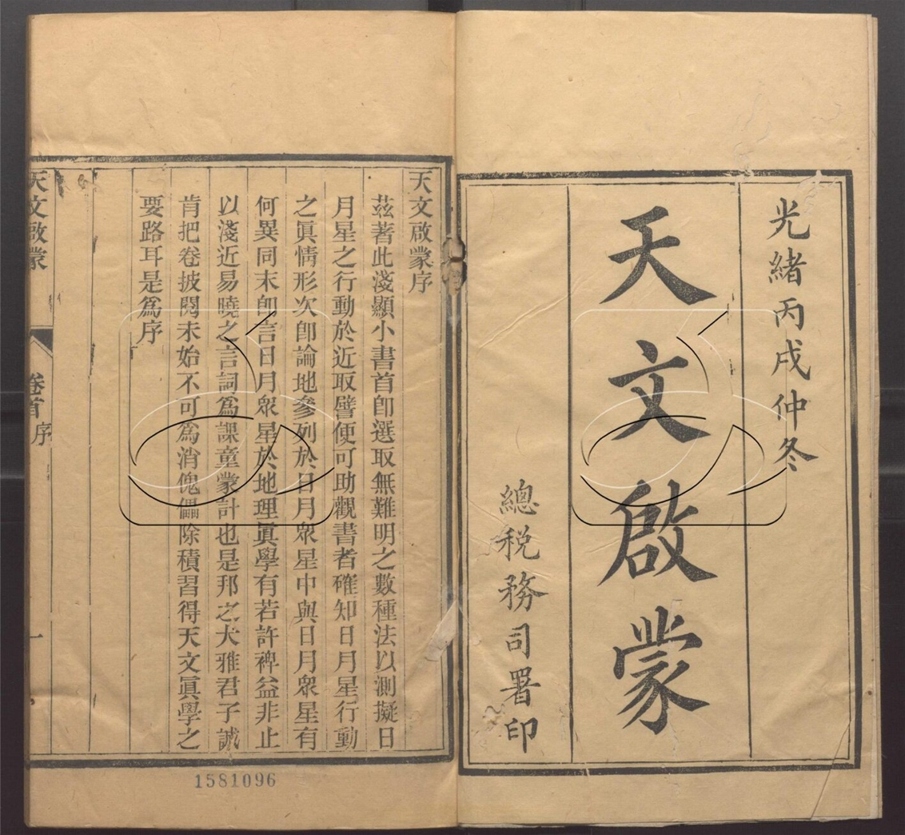 光緒丙戌仲冬
天文啟蒙
總稅務司署印
天文啟蒙序
茲著此淺顯小書首卽選取無難明之數種法以測擬日
月星之行動於近取譬便可助觀書者確知日月星行動
之眞情形次卽論地參列於日月衆星中與日月衆星有
何異同末卽言日月衆星於地理眞學有若許裨益非止
以淺近易曉之言詞爲課童蒙計也是邦之大雅君子誠
肯把卷披閱未始不可爲消傀儡除積習得天文眞學之
要路耳是爲序
天文啟蒙
卷首序
一
1581096